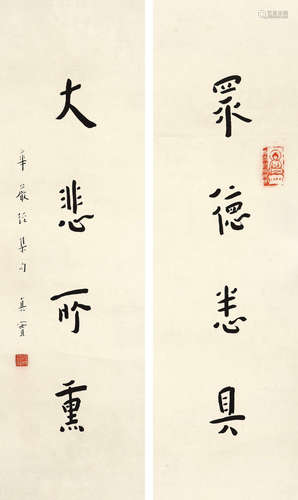 眾德悉具
大悲所熏
華嚴經集句 真實